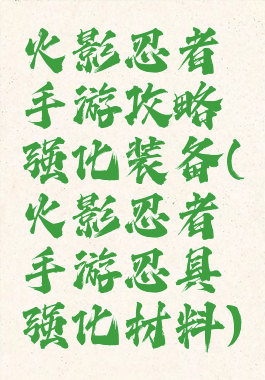 火影忍者
手游攻略
强化装备(
火影忍者
手游忍具
强化材料)